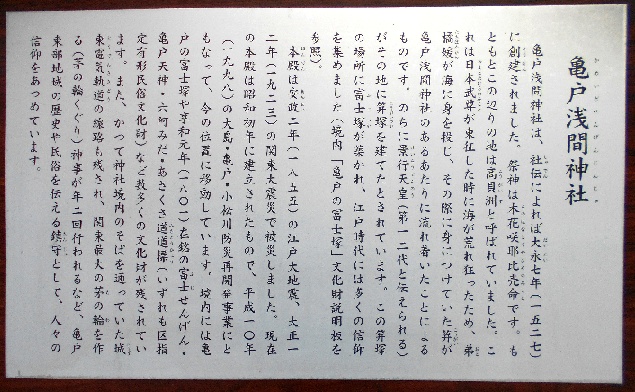 亀戸浅間神社
亀戸浅間神社は、社伝によれば大永七年(一五二七)
に創建されました。祭神は木花咲耶比売命です。も
ともとこの辺りの地は高貝洲と呼ばれていました。こ
れは日本武尊が東征した時に海が荒れ狂ったため、弟
橘媛が海に身を投し、その際に身につけていた笄が
亀戸浅間神社のあるあたりに流れ着いたことによる
ものです。のちに景行天皇(第一二代と伝えられる)
がその地に笄塚を建てたとされています。この笄塚
の場所に富士塚が築かれ、江戸時代には多くの信仰
を集めました(境内「亀戸の富士塚」文化財説明板を
参照)。
本殿は安政二年(一八五五)の江戸大地震、大正一
二年(一九二三)の関東大震災で被災しました。現在
の本殿は昭和初年に建立されたもので、平成一〇年
(一九九八)の大島・亀戸・小松川防災再開発事業にと
もなって、今の位置に移動しています。境内には亀
戸の富士塚や享和元年(一八〇一)在銘の富士せんげん・
亀戸天神・六阿みだ・あさくさ道道標(いずれも区指
定有形民俗文化財)など数多くの文化財が残されてい
ます。また、かつて神社境内のそばを通っていた城
東電気軌道の線路も残され、関東最大の茅の輪を作
る(茅の輪くぐり)神事が年二回行われるなど、亀戸
東部地域の歴史や民俗を伝える鎮守として、人々の
信仰をあつめています。